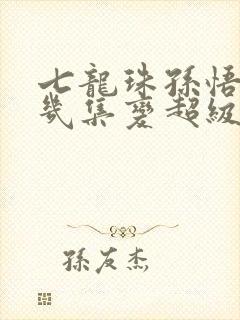 七龍珠孫悟
幾集變超級
孫友杰